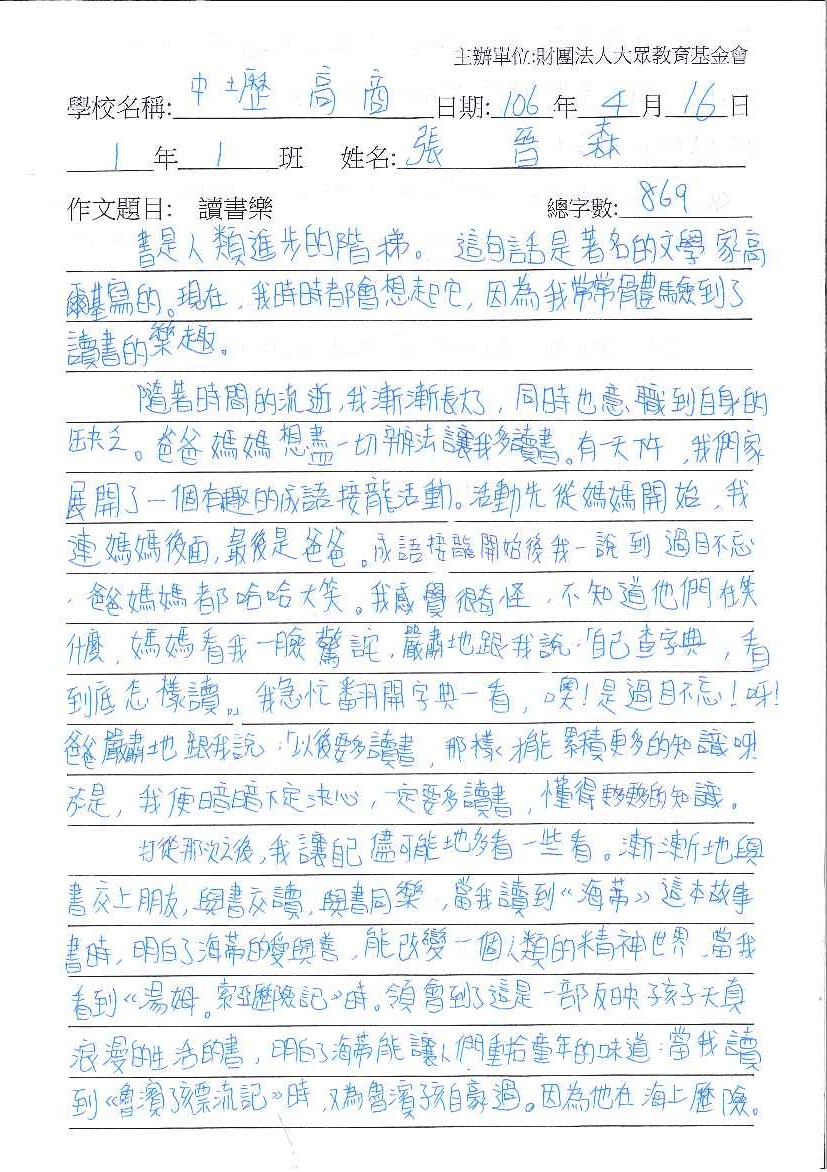 主辦單位:財團法人大眾教育基金會
學校名稱: 中壢高商 日期: 106 年 4 月 16 日
1 年 1 班 姓名: 張晉森
作文題目: 讀書樂 總字數: 869
書是人類進步的階梯。這句話是著名的文學家高
爾基寫的。現在,我時時都會想起它,因為我常常體驗到了
讀書的樂趣。
隨著時間的流逝,我漸漸長大了,同時也意識到自身的
缺乏。爸爸媽媽想盡一切辦法讓我多讀書。有一天下午,我們家
展開了一個有趣的成語接龍活動。活動先從媽媽開始,我
連媽媽後面,最後是爸爸。成語接龍開始後我一說到過目不忘
,爸爸媽媽都哈哈大笑。我感覺很奇怪,不知道他們在笑
什麼,媽媽看我一臉驚詫,嚴肅地跟我說:「自己查字典,看
到底怎樣讀。」我急忙翻開字典一看,噢!是過目不忘!呀!
爸爸嚴肅地跟我說:「以後要多讀書,那樣才能累積更多的知識呀!
於是,我便暗暗下定決心,一定要多讀書,懂得更多的知識。
打從那次之後,我讓自己儘可能地多看一些看。漸漸地與
書交上朋友,與書交讀,與書同樂,當我讀到《海蒂》這本故事
書時,明白了海蒂的愛與善,能改變一個人類的精神世界,當我
看到《湯姆。索亞歷險記》時。領會到了這是一部反映孩子天真
浪漫的生活的書,明白了海蒂能讓人們重拾童年的味道:當我讀
到《魯濱孩漂流記》時,又為魯濱孩自豪過。因為他在海上歷險。